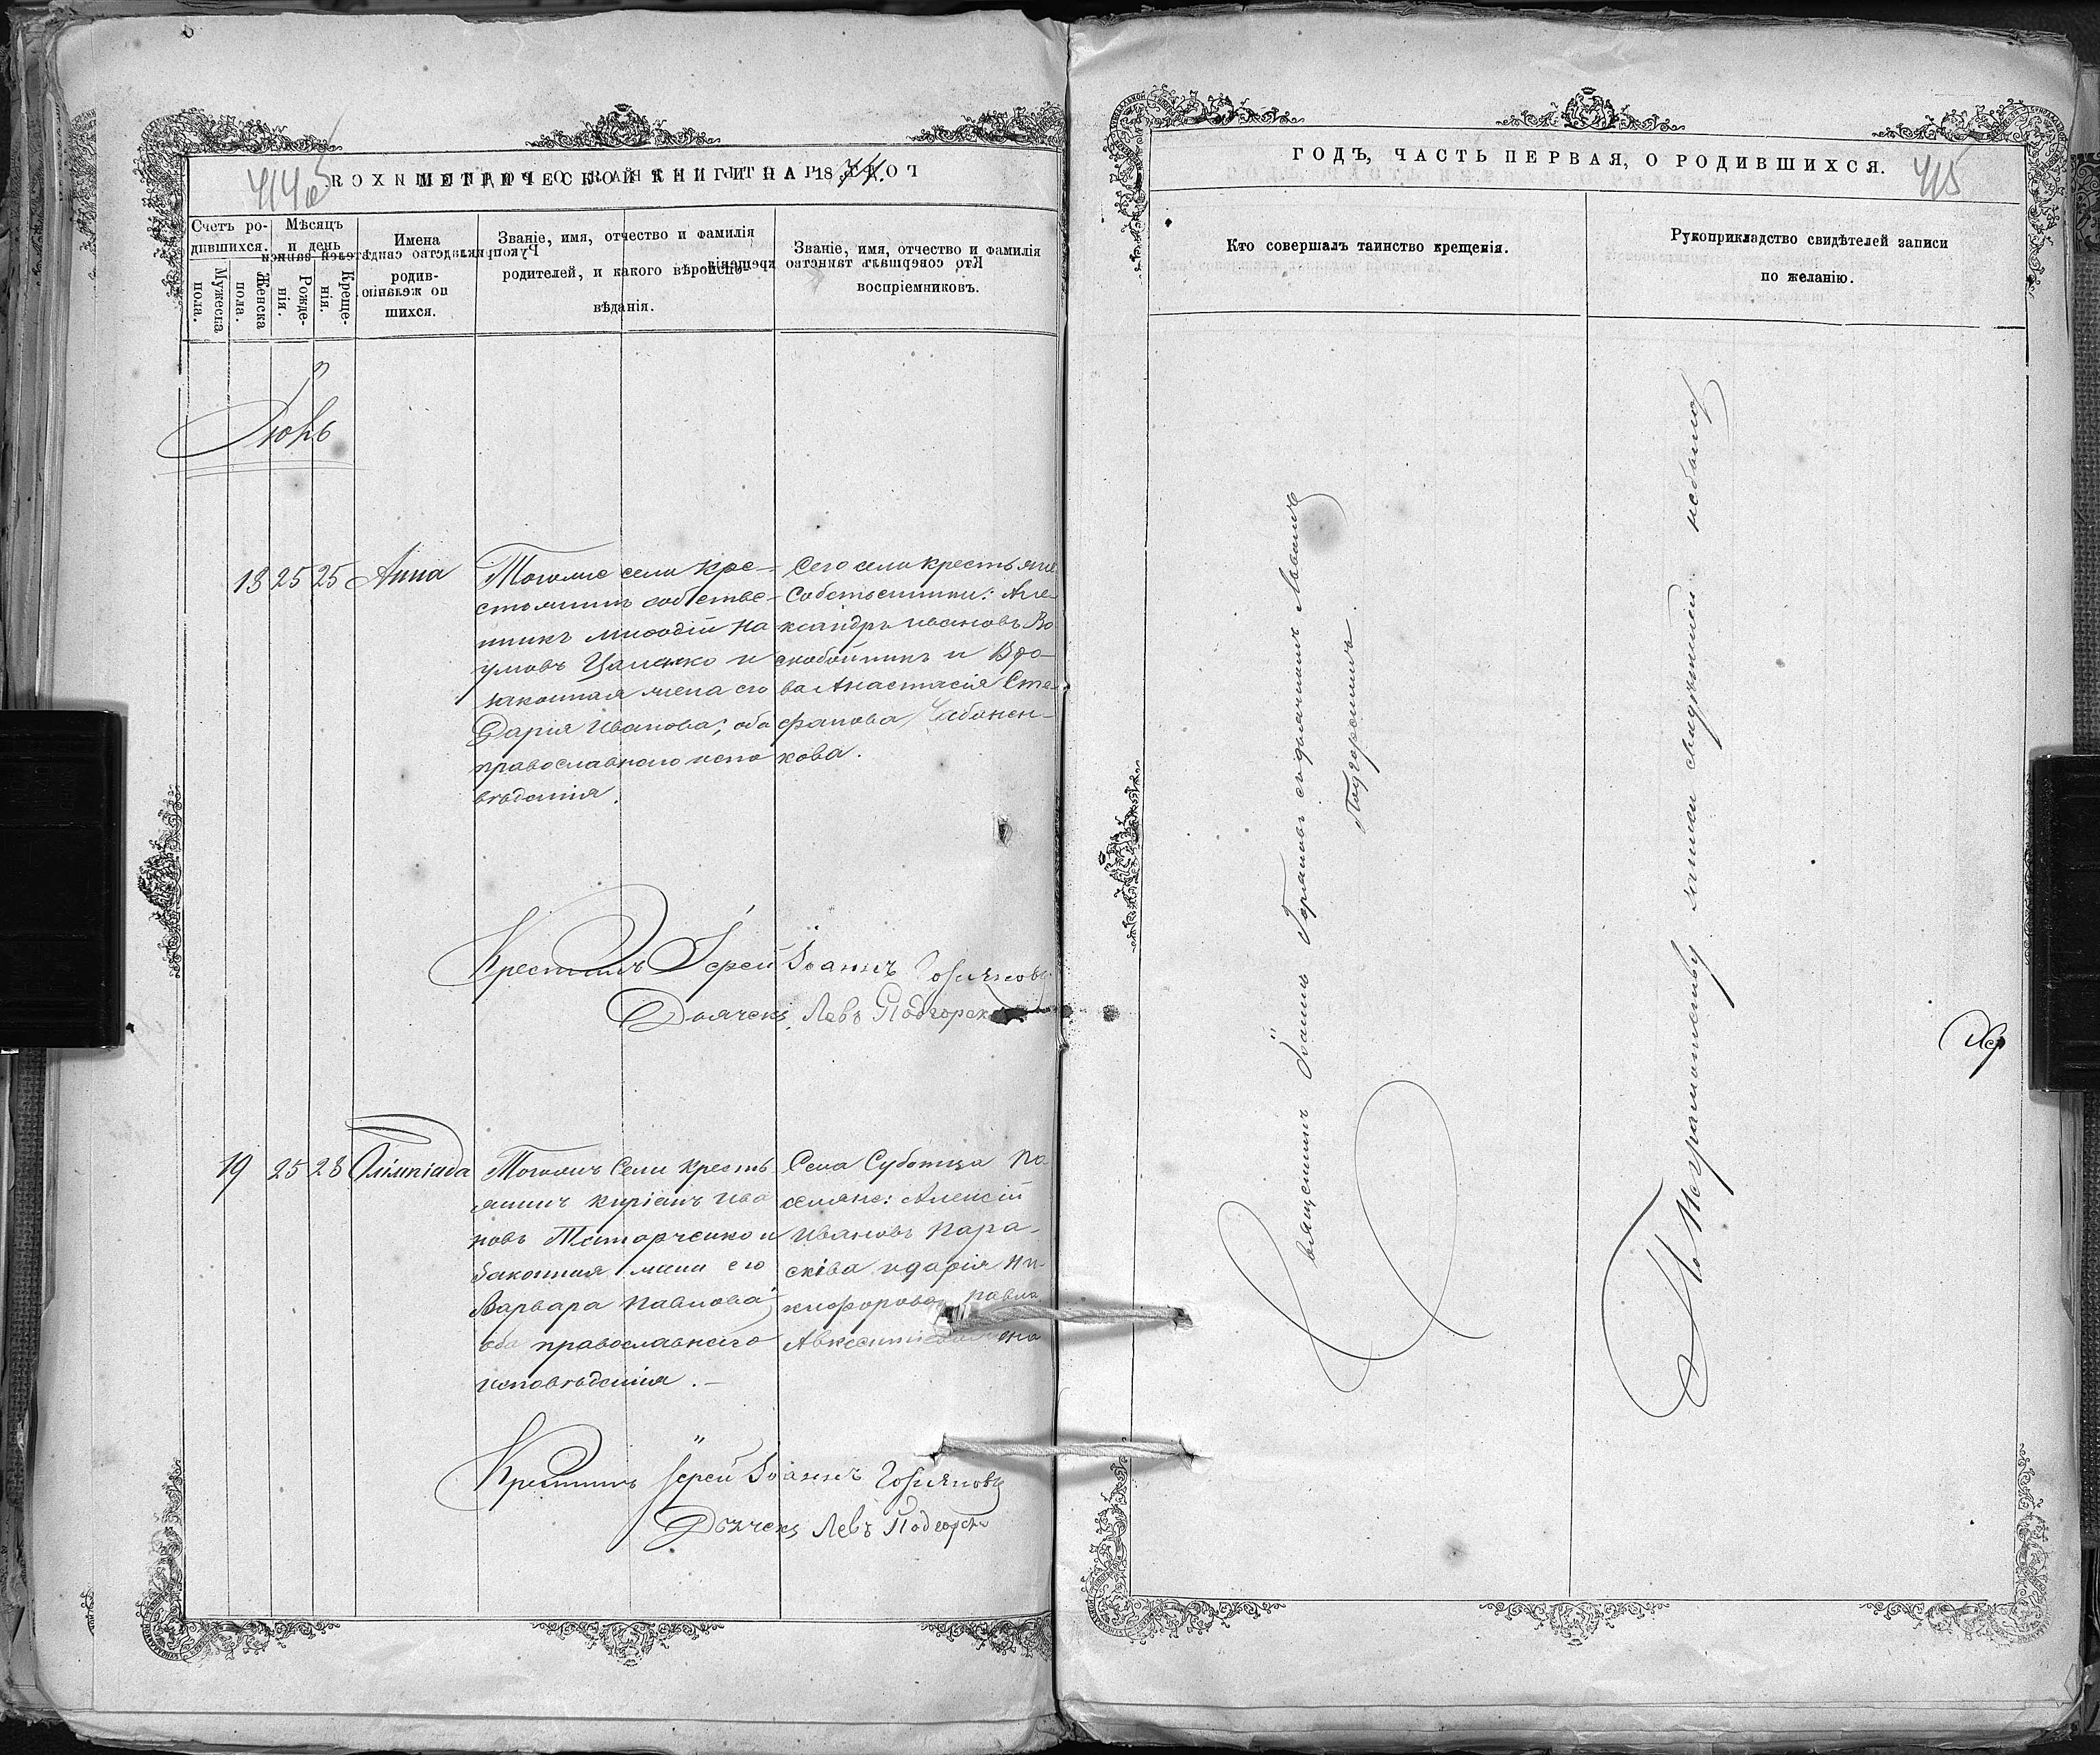 414об
МЕТРИЧЕСКОЙ КНИГИ НА 1874
Счетъ ро-
дившихся.
Мужеска пола.
Женска пола.
Мѣсяцъ
и день
Рожде-
нія.
Креще-
нія.
Имена
родив-
шихся.
Званіе, имя, отчество и фамилія
родителей, и какого вѣроиспо-
вѣданія.
Званіе, имя, отчество и фамилія
воспріемниковъ.
18 25 25 Анна
Тогоже села кре-
стьянинъ собстве-
нникъ Мифодій На
умовъ Цаленко и
законная жена его
Дарія Иванова; оба
православнаго испо
вѣданія.
Сего села крестьяне
собственники: Але-
ксандръ Ивановъ Во
скобойникъ и Вдо-
ва Анастасія Сте-
фанова Чабанен-
кова.
Крестилъ Іерей Іоаннъ Горияновъ
Дьячекъ Левъ Подгорск
19 25 28 Олимпіада
Тогожъ Села кресть
янинъ Кирiанъ Ива
новъ Титорченко и
Законная жена его
Варвара Павлова;
оба православнаго
исповѣданія.-
Села Суботца по
селяне: Алексій
Ивановъ Пара-
сківа и Дарія Ни-
кифорова, Павла
Авксентіева жена
Крестилъ Іерей Іоаннъ Горияновъ
Дьячекъ Левъ Подгорск
ГОДЪ, ЧАСТЬ ПЕРВАЯ, О РОДИВШИХСЯ.
415
Кто совершалъ таинство крещенія.
Рукоприкладство свидѣтелей записи
по желанію.
Священникъ Іоаннъ Горяновъ съ дьячкомъ Львомъ
Подгорскимъ.
По Неграмотству записи свидѣтелей не было